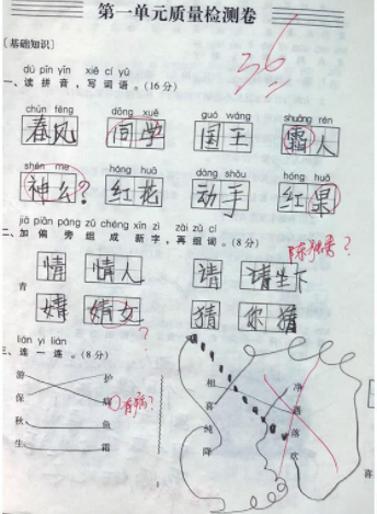 第一单元质量检测卷
36
〔基础知识〕
dú pīn yīn xiě cí yǔ
一、读拼音，写词语。(16分)
chūn fēng dōng xuě guó wáng shuāng rén
春风 同学 国王 霜人
shén me hóng huā dòng shǒu hóng huǒ
神么？ 红花 动手 红果
jiā piān páng zǔ chéng xīn zì zài zǔ cí
二、加偏旁组成新字，再组词。(8分)
青 情 情人 请 请坐下
婧 婧女？ 猜 你猜
lián yì lián
三、连一连。(8分)
游 护 相 净
保 病 有病？ 喜 遇
秋 鱼 纯 落
生 霜 降 欢